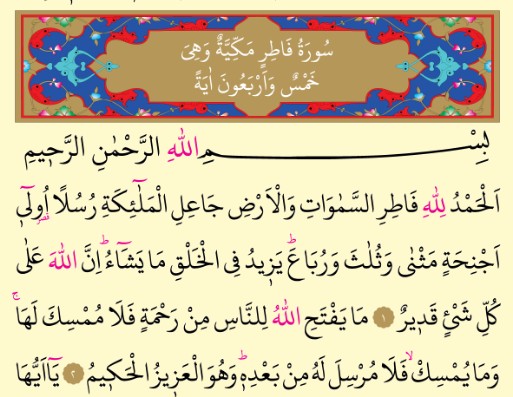 سُورَةُ فَاطِرٍ مَكِّيَّةٌ وَهِيَ
خَمْسٌ وَاَرْبَعُونَ اٰيَةً
بِسْمِ اللهِ الرَّحْمٰنِ الرَّحٖيمِ
اَلْحَمْدُ لِلّٰهِ فَاطِرِ السَّمٰوَاتِ وَالْاَرْضِ جَاعِلِ الْمَلٰٓئِكَةِ رُسُلًا اُو۬لٖٓى
اَجْنِحَةٍ مَثْنٰى وَثُلٰثَ وَرُبَاعَۜ يَزٖيدُ فِى الْخَلْقِ مَا يَشَٓاءُۜ اِنَّ اللهَ عَلٰى
كُلِّ شَیْءٍ قَدٖيرٌ ﴿١﴾ مَا يَفْتَحِ اللهُ لِلنَّاسِ مِنْ رَحْمَةٍ فَلَا مُمْسِكَ لَهَاۚ
وَمَا يُمْسِكْۙ فَلَا مُرْسِلَ لَهُ مِنْ بَعْدِهٖۜ وَهُوَ الْعَزٖيزُ الْحَكٖيمُ ﴿٢﴾ يَٓا اَيُّهَا